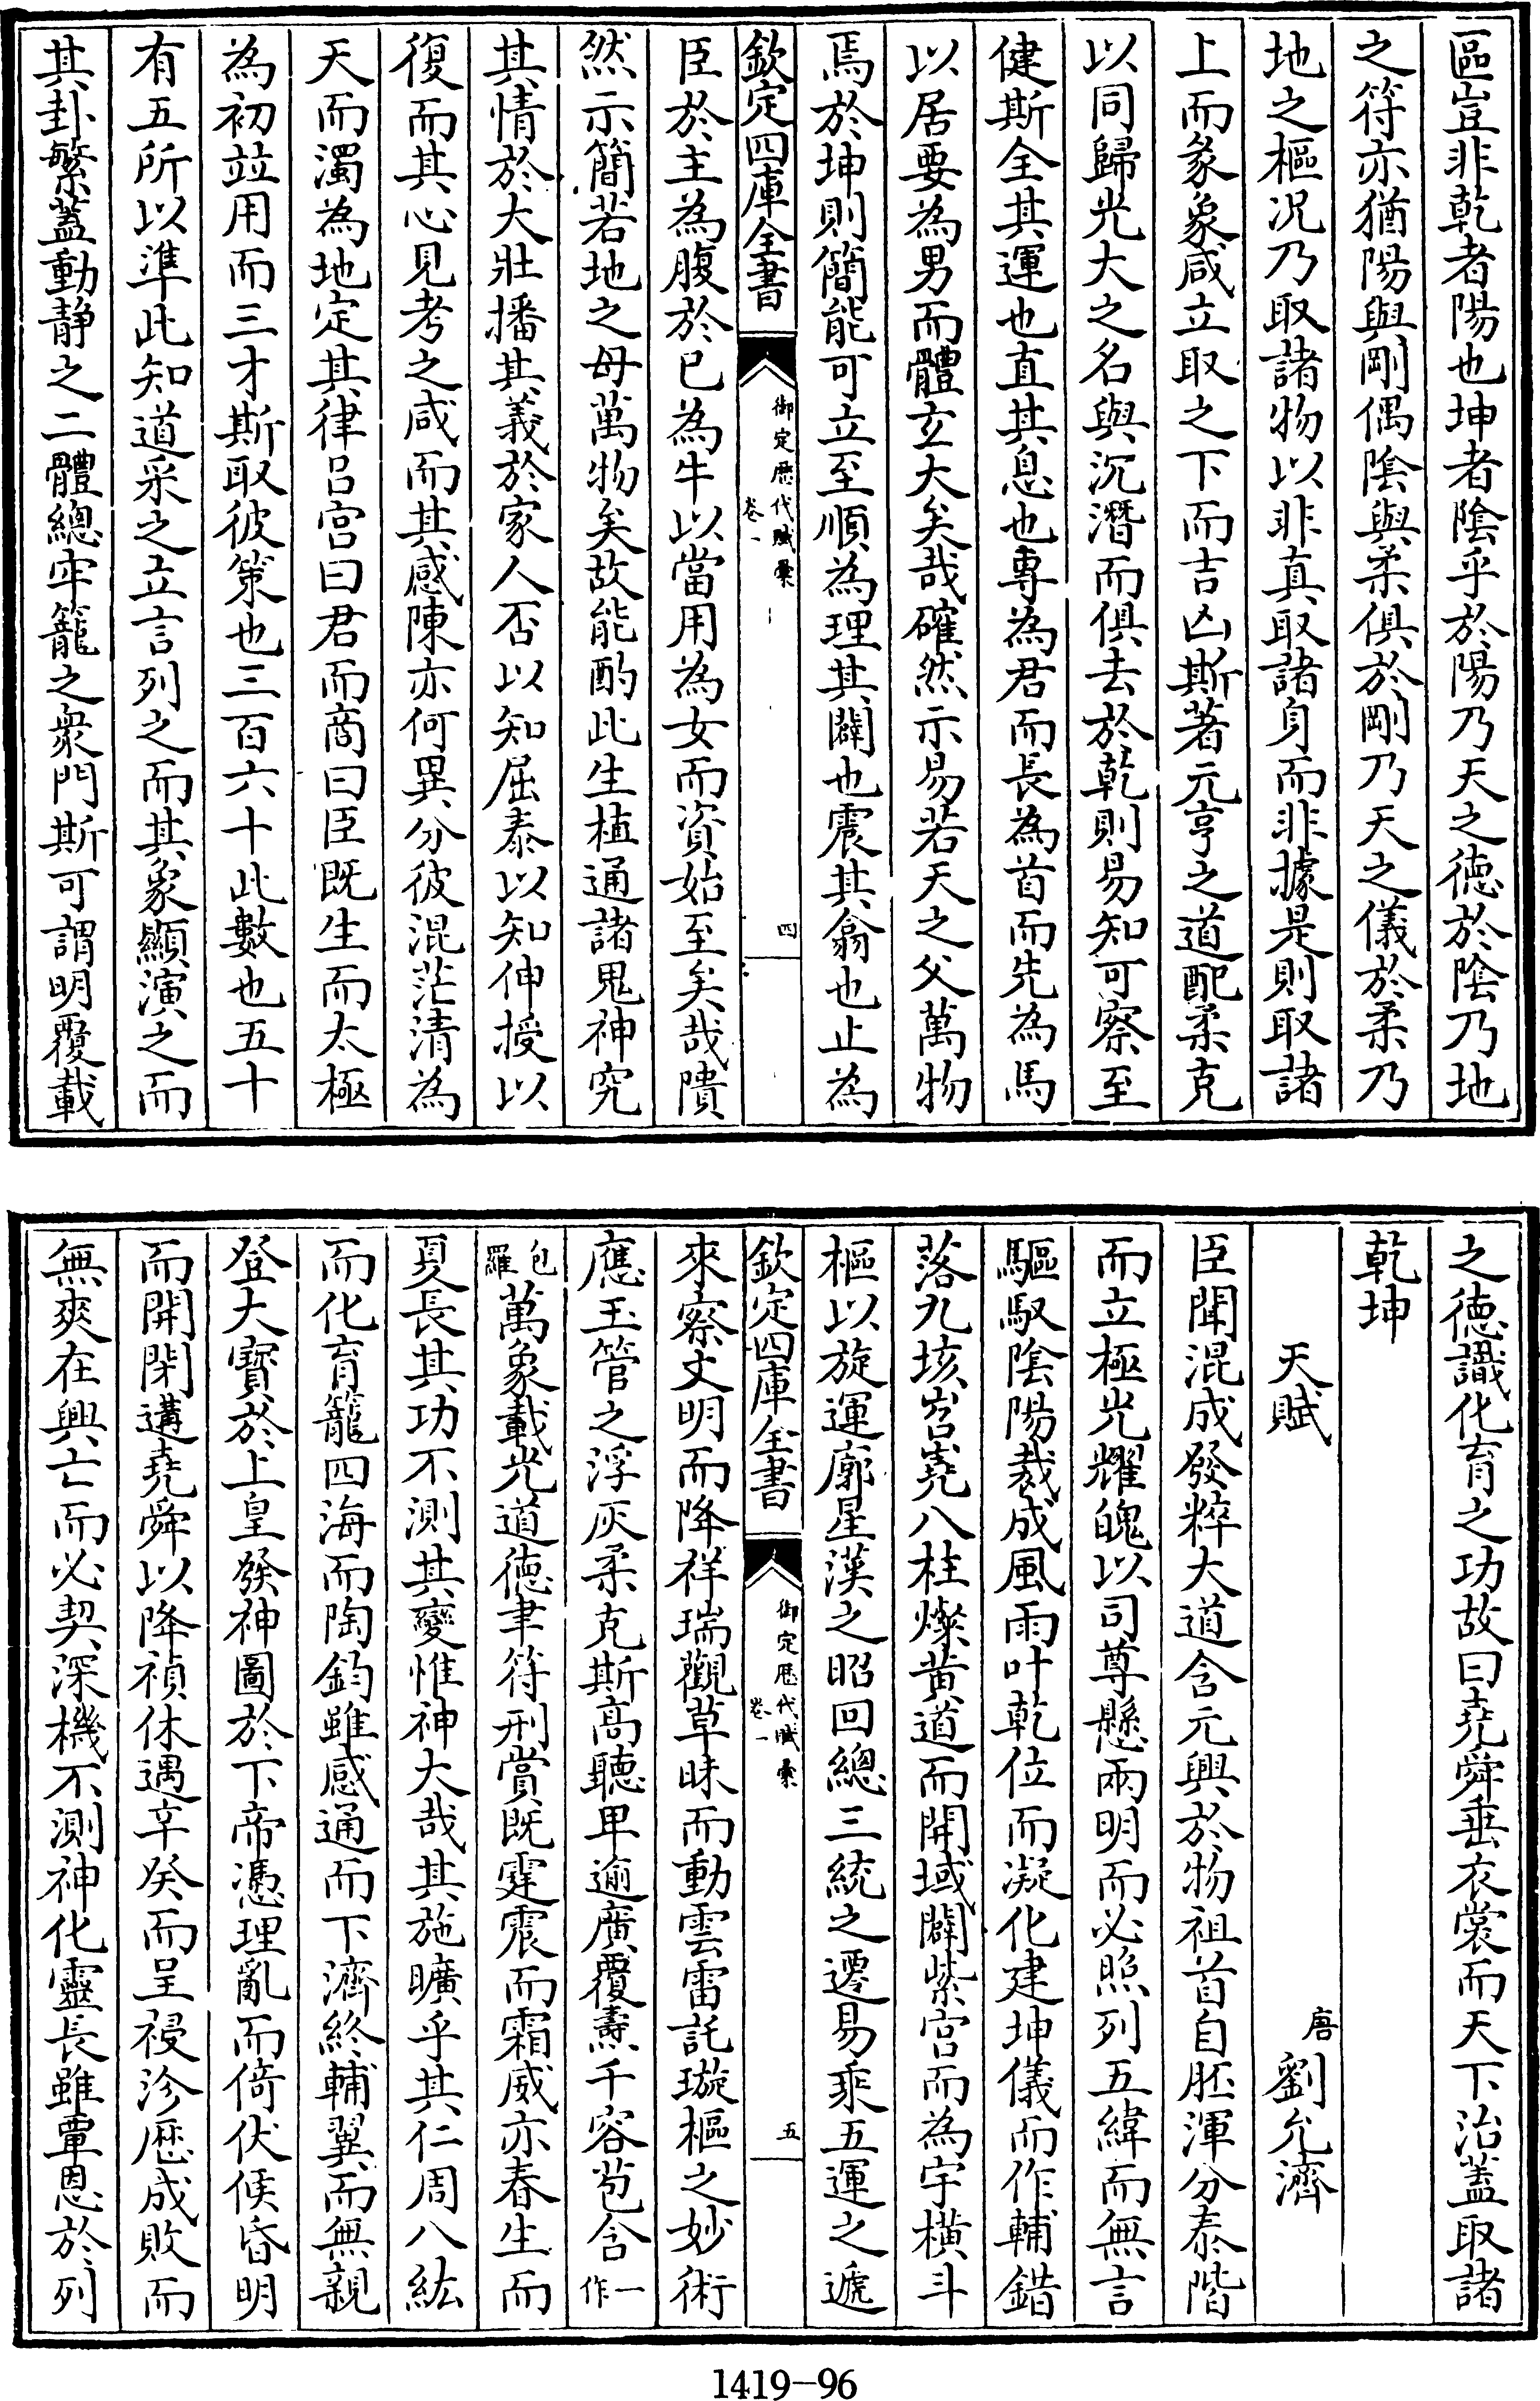 區豈非乾者陽也坤者陰乎於陽乃天之德於陰乃地
之符亦猶陽與剛偶陰與柔俱於剛乃天之儀於柔乃
地之樞况乃取諸物以非真取諸身而非據是則取諸
上而象象咸立取之下而吉凶斯著元亨之道配柔克
以同歸光大之名與沉潛而俱去於乾則易知可察至
健斯全其運也直其息也專為君而長為首而先為馬
以居要為男而體玄大矣哉確然示易若天之父萬物
焉於坤則簡能可立至順為理其闢也震其翕也止為
欽定四庫全書
御定歷代賦彙
卷一
四
臣於主為腹於已為牛以當用為女而資始至矣哉隤
然示簡若地之母萬物矣故能酌此生植通諸鬼神究
其情於大壯播其義於家人否以知屈泰以知伸授以
復而其心見考之咸而其感陳亦何異分彼混茫清為
天而濁為地定其律呂宫曰君而商曰臣既生而太極
為初並用而三才斯取彼策也三百六十此數也五十
有五所以準此知道采之立言列之而其象顯演之而
其卦繁蓋動静之二體總牢籠之衆門斯可謂明覆載
之德識化育之功故曰堯舜垂衣裳而天下治蓋取諸
乾坤
天賦
唐 劉允濟
臣聞混成發粹大道含元興於物祖首自胚渾分泰階
而立極光耀魄以司尊懸兩明而必照列五緯而無言
驅馭陰陽裁成風雨叶乾位而凝化建坤儀而作輔錯
落九垓岧嶤八柱燦黄道而開域闢紫宫而為宇横斗
樞以旋運廓星漢之昭回總三統之遷易乘五運之遞
欽定四庫全書
御定歷代賦彙
卷一
五
來察文明而降祥瑞觀草昧而動雲雷託璇樞之妙術
應玉管之浮灰柔克斯高聽卑逾廣覆燾千容苞含一作
包羅萬象載光道德聿符刑賞既霆震而霜威亦春生而
夏長其功不測其變惟神大哉其施曠乎其仁周八紘
而化育籠四海而陶鈞雖感通而下濟終輔翼而無親
登大寶於上皇發神圖於下帝憑理亂而倚伏候昏明
而開閉遘堯舜以降禎休遇辛癸而呈祲沴歷成敗而
無爽在興亡而必契深機不測神化靈長雖覃恩於列
1419-96